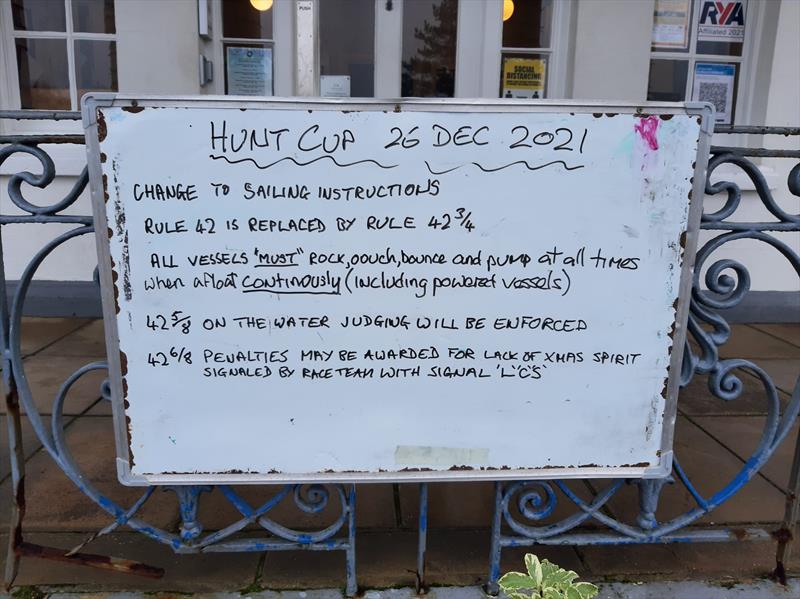 PUSH
RYA
Affiliated 2021
SOCIAL
DISTANCING
HUNT CUP 26 DEC 2021
CHANGE TO SAILING INSTRUCTIONS
RULE 42 IS REPLACED BY RULE 42 3/4
ALL VESSELS "MUST" ROCK, oouch, bounce and pump at all times
when afloat continously (including powered vessels)
42 5/8 ON THE WATER JUDGING WILL BE ENFORCED
42 6/8 PENALTIES MAY BE AWARDED FOR LACK OF XMAS SPIRIT
SIGNALED BY RACE TEAM WITH SIGNAL 'L''C''S'